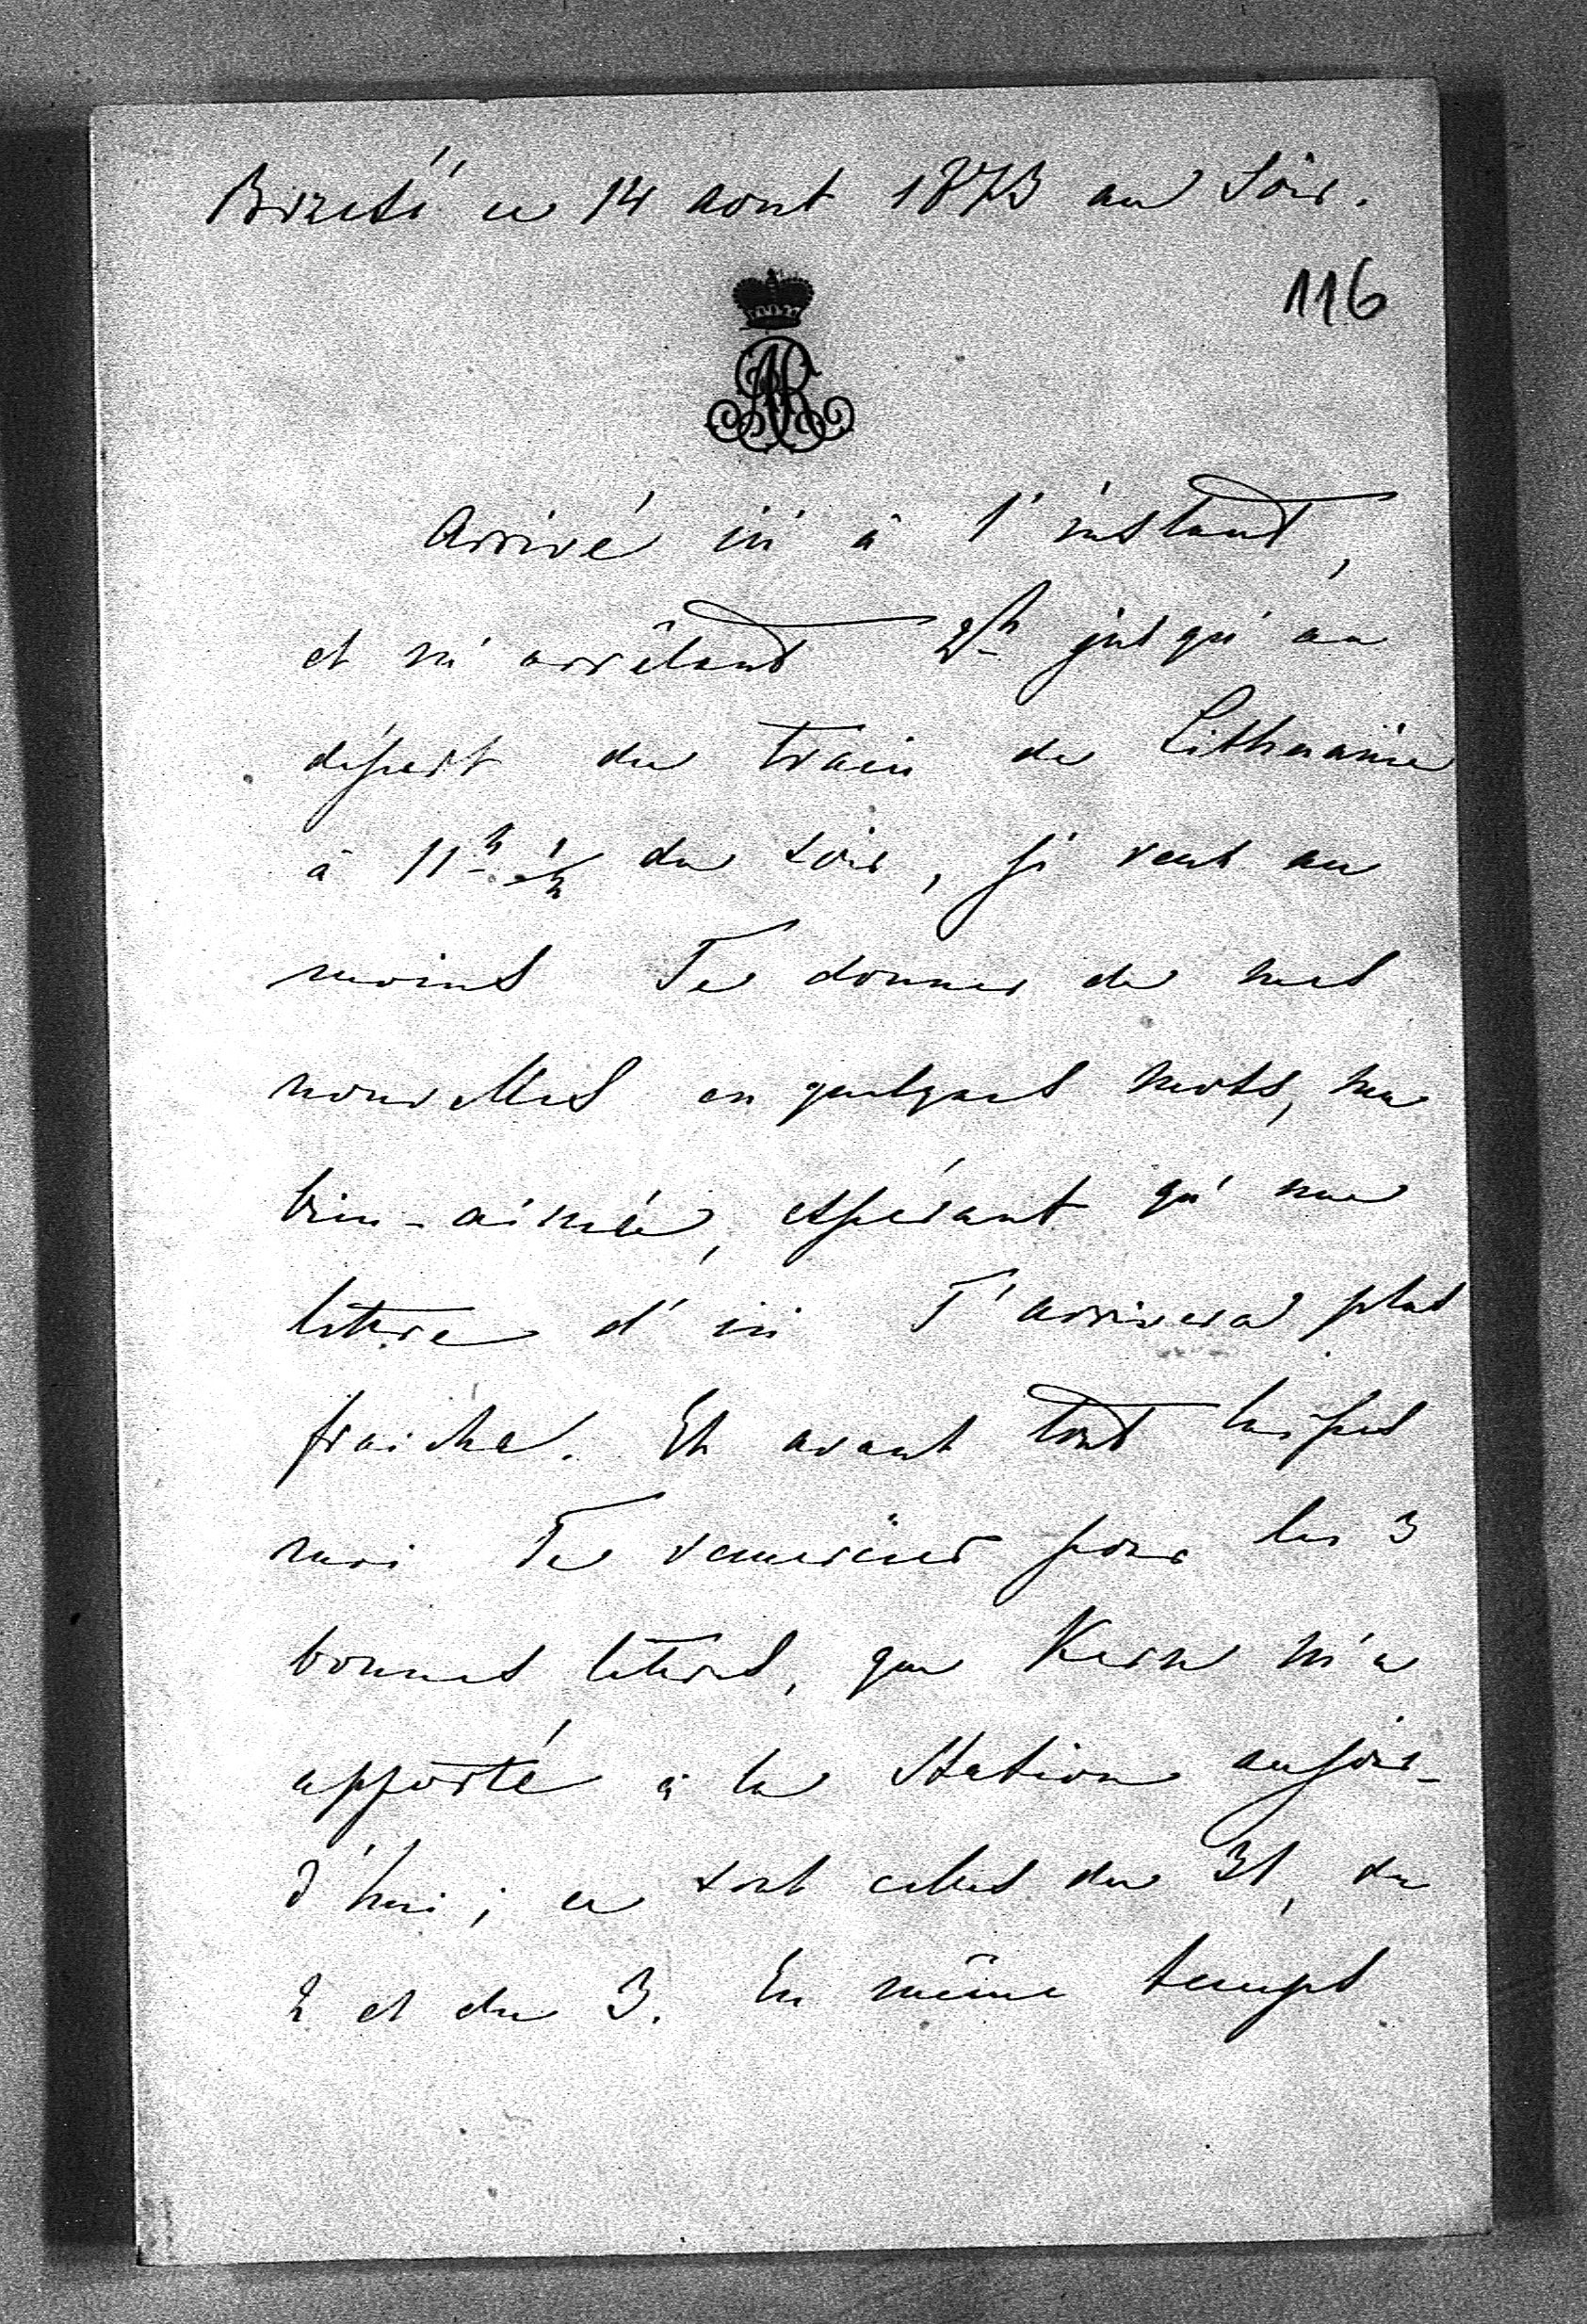 Brzesć ce 14 aout 1873 au soir.
116
AR
Arrivé ici à l'instant,
et m'arrêtant 2h jusqu'au
départ du train de Lithuanie
à 11h ½ du soir, je veut au
moins Te donner de mes
nouvelles en quelques mots, ma
bien-aimée, espérant qu'une
lettre d'ici T'arrivera plus
fraiche. Et avant tout laisses
moi Te remercier pour les 3
bonnes lettres, que Kern m'a
apporté à la Station aujour-
d'hui; ce sont celles du 31, du
2 et du 3. En même temps